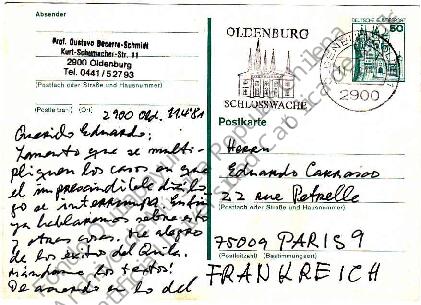 Absender
Prof. Gustavo Becerra-Schmidt
Kurt-Schumacher-Str. 11
2900 Oldenburg
Tel. 0441/52793
(Postfach oder Straße und Hausnummer)
(Postleitzahl) (Ort)
2900 Old. 11.4.81
Querido Eduardo:
Lamento que se multi-
pliquen los casos en que
el imprescindible diálo-
go se interrumpa. En fin
ya hablaremos sobre esto
y otras cosas. Me alegro
de los éxitos del Quila.
Mándame los textos!
De acuerdo en lo del
OLDENBURG
SCHLOSSWACHE
2900
DEUTSCHE BUNDESPOST
50
Postkarte
Herrn
Eduardo Carrasco
22 rue Petrelle
(Postfach oder Straße und Hausnummer)
75009 PARIS 9
(Postleitzahl) (Bestimmungsort)
FRANKREICH